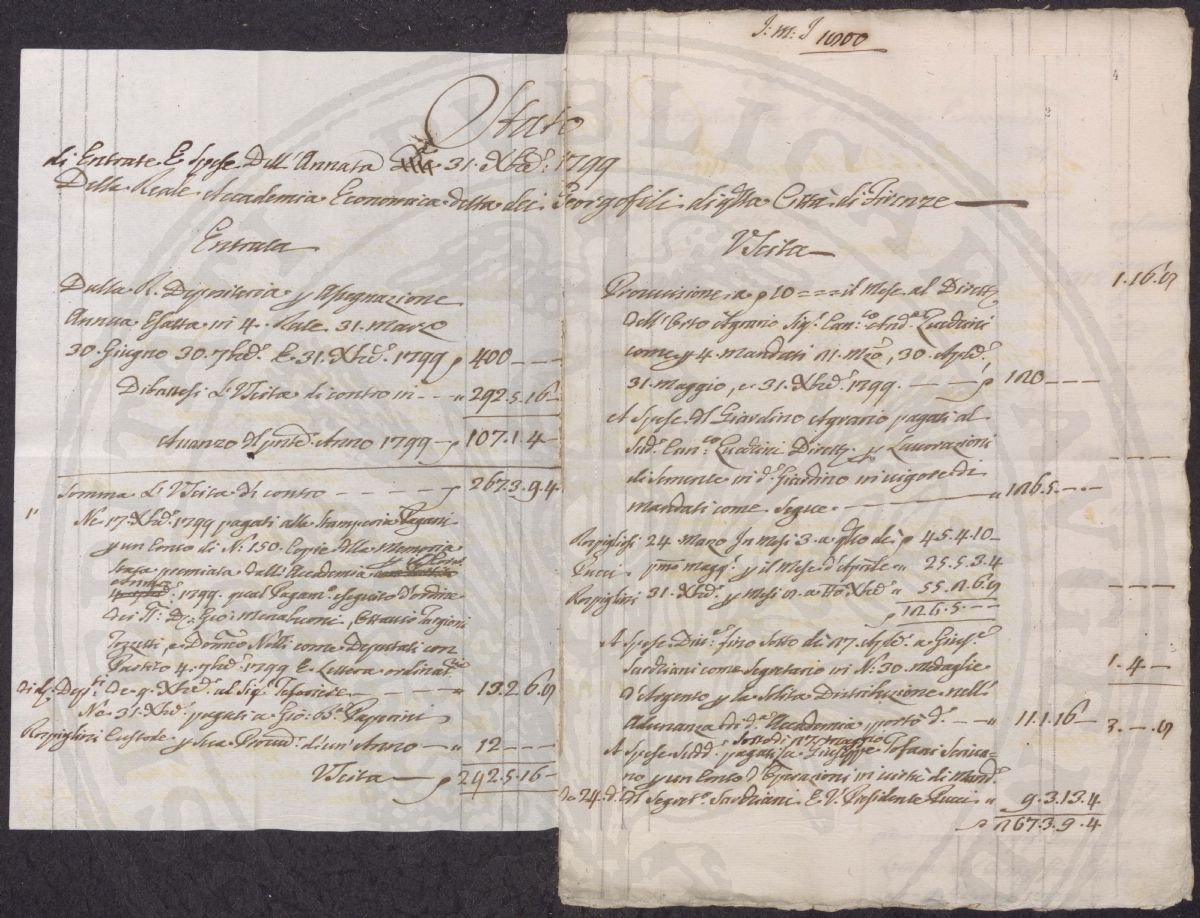 J: M: J 1800
Stato
di Entrate E Spese Dell' Annata 31. Xbre: 1799
Della Reale Accademia Economica detta dei Georgofili di qsta Città di Firenze
Entrata
Dalla R. Depositeria p Assegnazione
Annua Esatta in 4. Rate 31. Marzo
30. Giugno 30. 7bre: E 31. Xbre: 1799 p 400 — — —
Dibattesi L'Vscita di contro in — — " 292.5.16 —
Auanzo del pnte: Anno 1799 — p 107.1.4 —
Somma L'Vscita di contro — — — — p 267.3.9.4
Ne 17. Xbre: 1799 pagati alla Stamperia Pagani
p un Conto di No. 150. Copie della Memoria
premiata dall' Accademia
1799. qual Pagamto. eseguito d'ordine
dei SS:ri Dr. Gio: Menabuoni, Ottauio Targioni
Tozzetti, e Domco: Nelli come Deputati con
Partito 4. 7bre 1799 E Lettera
De 9. Xbre: al Sigr: Tesoriere — — — — " 13.2.6.8
Ne 31. Xbre: pagati a Gio: Bta: Paperini
Rospigliosi Custode p sua Prouuis: d'un' Anno — " 12 — — —
Vscita — p 292.5.16 —
Vscita
Prouuisione a p 10 — — — il Mese al Dirett:
dell' Orto Agrario Sigr: Canco: Anda: Zucchini
come p 4. Mandati 11. Mzo:, 30. Aple:,
31. Maggio, e 31. Xbre: 1799. — — — p 120 — — —
A Spese del Giardino Agrario pagati al
Sudo: Canco: Zucchini Dirett: p Lauorazioni
di Semente in do: Giardino in vigore di
mandati come Segue — — — — " 126.5. — —
Rospigliosi 24. Marzo In Mesi 3. a qto. dì p 45.4.10 —
Pucci pmo. Magg: p il Mese d'Aprile " 25.5.3.4
Rospigliosi 31. Xbre: p Mesi 8. a to. Xbre " 55.2.6.8
p 126.5. — —
A Spese Diue: fino sotto dì 17. Aple: a Giuse:
Sarchiani come Segretario in No. 30. Medaglie
d'Argento p la Solita Distribuzione nell'
Adunanza di da. Accademia — — " 11.1.16 —
A Spese Sudd: pagati a Giuseppe Tofani Scriua-
no p un Conto d'Operazioni in virtù di Mand:
De 24. do: del Segreto: Sarchiani E V. Presidente Pucci " 9.3.13.4
p 267.3.9.4
1.16.8
— — —
— — —
1.4 —
3. — .8
2
4